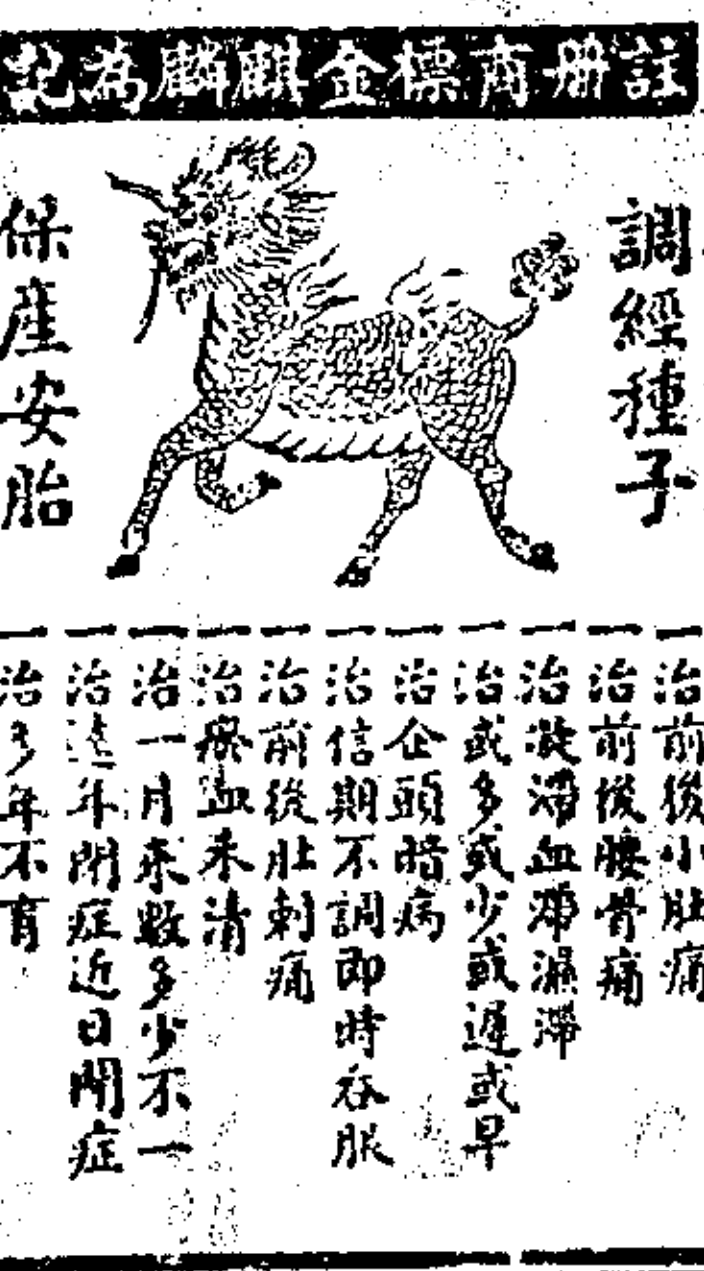 註册商標金麒麟為記
調經種子
保産安胎
一治前後小肚痛
一治前後腰骨痛
一治凝滯血滯濕滯
一治或多或少或遲或早
一治企頭暗病
一治信期不調即時吞服
一治前後肚刺痛
一治瘀血未清
一治一月來數多少不一
一治遠年閉症近日閉症
一治多年不育